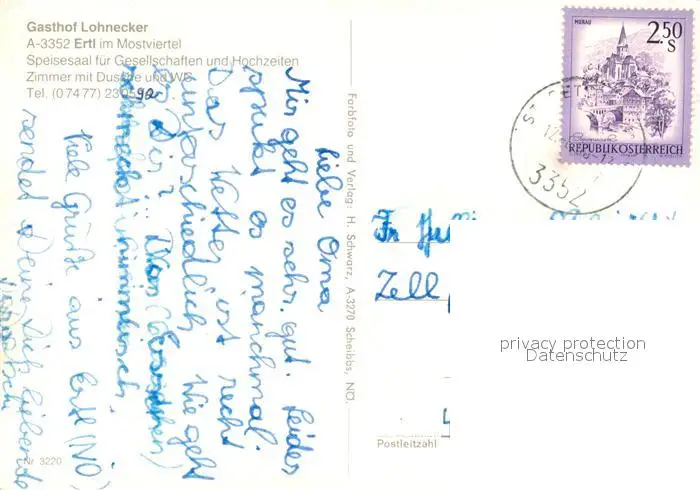 Gasthof Lohnecker
A-3352 Ertl im Mostviertel
Speisesaal für Gesellschaften und Hochzeiten
Zimmer mit Dusche und WC
Tel. (0 74 77) 23
Liebe Oma
Mir geht es sehr gut. Leider
spukt es manchmal.
Das Wetter ist recht
unterschiedlich. Wie geht
es Dir? Das Essen
himmlisch
Viele Grüße aus Ertl (NÖ)
sendet Deine Dich liebende
Nr. 3220
Farbfoto und Verlag: H. Schwarz, A-3270 Scheibbs, NÖ.
MURAU
2.50
S
REPUBLIK ÖSTERREICH
3352
Fr
Zell
privacy protection
Datenschutz
Postleitzahl